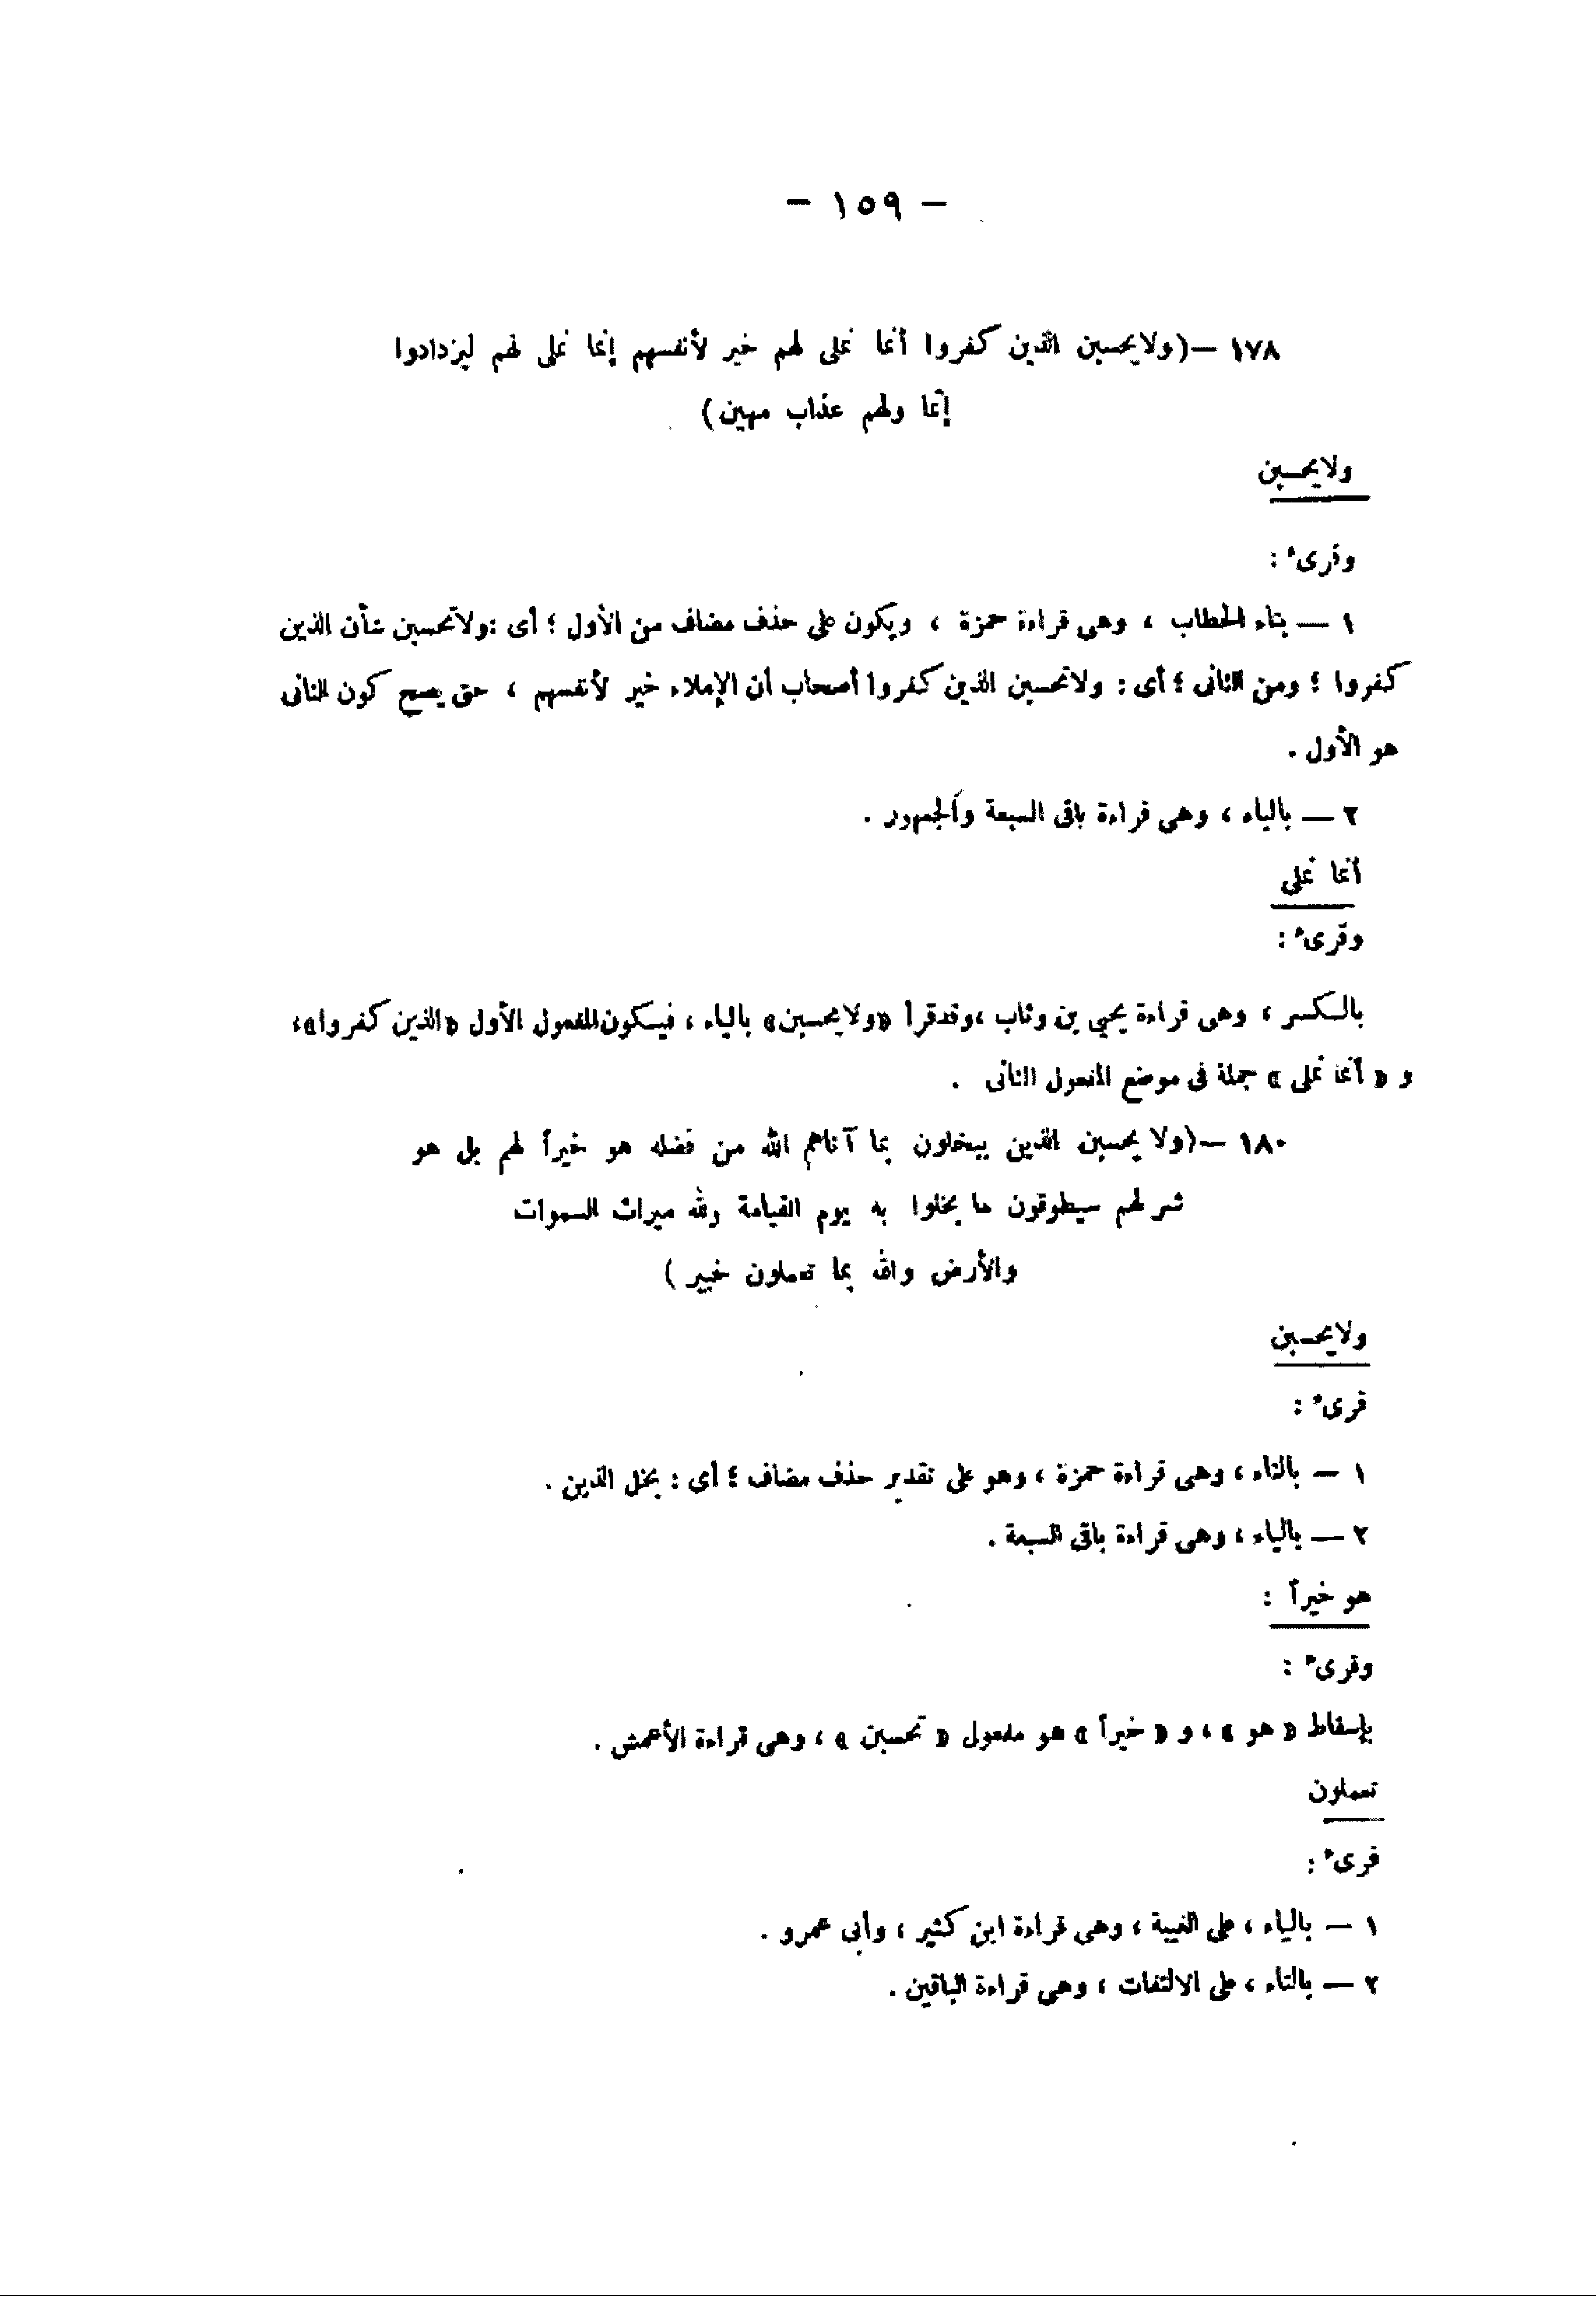 — ١٥٩ —
١٧٨ —(ولا يحسبن الذين كفروا أنما نملى لهم خير لأنفسهم إنما نملى لهم ليزدادوا
إثما ولهم عذاب مهين)
ولا يحسبن
وقرىء :
١ — بتاء الخطاب ، وهى قراءة حمزة ، ويكون على حذف مضاف من الأول ؛ أى :ولا تحسبن شأن الذين
كفروا ؛ ومن الثانى ؛ أى : ولا تحسبن الذين كفروا أصحاب أن الإملاء خير لأنفسهم ، حتى يصح كون الثانى
هو الأول .
٢ — بالياء ، وهى قراءة باقى السبعة والجمهور .
أنما نملى
وقرىء :
بالكسر ، وهى قراءة يحيى بن وثاب ،وقد قرأ «ولا يحسبن» بالياء ، فيكون المفعول الأول «الذين كفروا»،
و « أنما نملى » جملة فى موضع المفعول الثانى .
١٨٠ —(ولا يحسبن الذين يبخلون بما آتاهم الله من فضله هو خيراً لهم بل هو
شر لهم سيطوقون ما بخلوا به يوم القيامة ولله ميراث السموات
والأرض والله بما تعملون خبير )
ولا يحسبن
قرىء :
١ — بالتاء ، وهى قراءة حمزة ، وهو على تقدير حذف مضاف ؛ أى : بخل الذين .
٢ — بالياء ، وهى قراءة باقى السبعة .
هو خيراً :
وقرىء :
بإسقاط « هو » ، و « خيراً » هو مفعول « تحسبن » ، وهى قراءة الأعمش .
تعملون
قرىء :
١ — بالياء ، على الغيبة ، وهى قراءة ابن كثير ، وأبى عمرو .
٢ — بالتاء ، على الالتفات ، وهى قراءة الباقين .